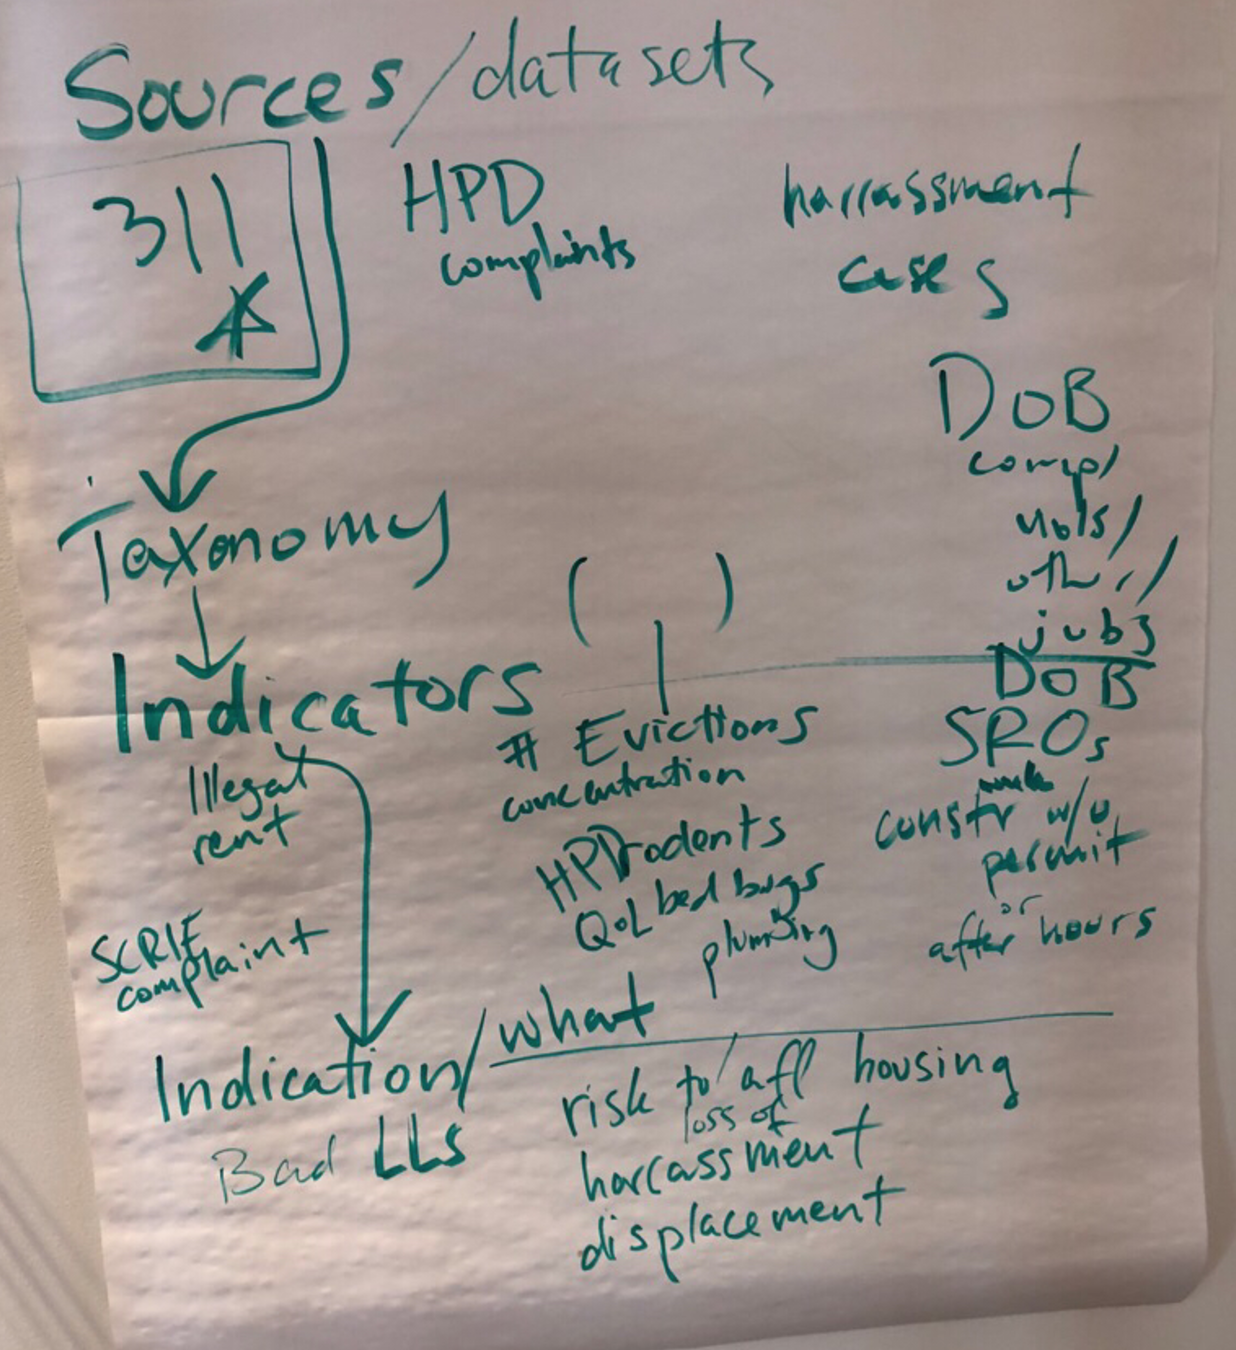 Sources/datasets
311
HPD
complaints
harrassment
cases
DOB
compl
viols/
other/
jobs
Taxonomy
( )
Indicators
Illegal
rent
SCRIE
complaint
# Evictions
concentration
HPD rodents
QoL bed bugs
plumbing
DOB
SROs
constr w/o
permit
or
after hours
Indication/what
Bad LLs
risk to/aff housing
loss of
harrassment
displacement